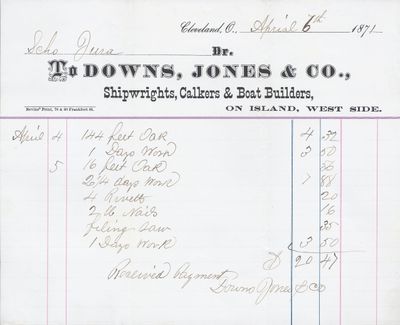 Cleveland, O., Aprial 6th 1871
Scho Jura Dr.
To DOWNS, JONES & CO.,
Shipwrights, Calkers & Boat Builders,
ON ISLAND, WEST SIDE.
April 4 144 feet Oak 4 32
1 Days Work 3 50
5 16 feet Oak 36
2 1/4 days Work 7 88
4 Rivets 20
2 lb Nails 16
fileing Saw 35
1 Days Work 3 50
$ 20 47
Received Payment
Downs Jones & Co